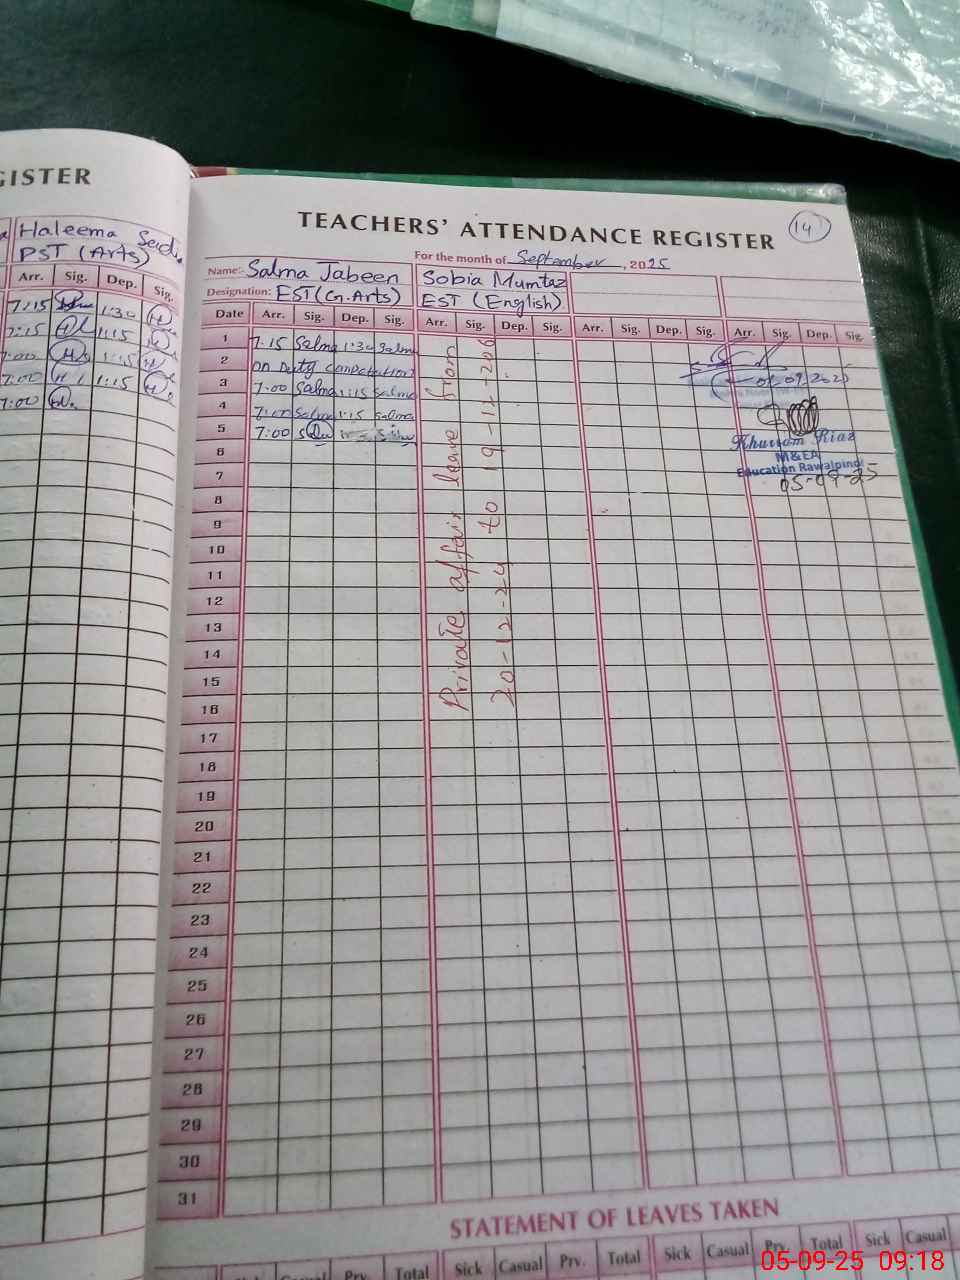 GISTER
Haleema Sadi
PST (Arts)
Arr. Sig. Dep. Sig.
7:15 1:30
7:15 1:15
7:00 1:15
7:00 1:15
7:00
TEACHERS' ATTENDANCE REGISTER
14
For the month of September, 2025
Name:- Salma Jabeen Sobia Mumtaz
Designation: EST (Gn.Arts) EST (English)
Date Arr. Sig. Dep. Sig. Arr. Sig. Dep. Sig. Arr. Sig. Dep. Sig. Arr. Sig. Dep. Sig.
1 7:15 Salma 1:30 Salma
2 on Duty
3 7:00 Salma 1:15 Salma
4 7:00 Salma 1:15 Salma
5 7:00
6
7
8
9
10
11
12
13
14
15
16
17
18
19
20
21
22
23
24
25
26
27
28
29
30
31
Private affair leave from
20-12-24 to 19-12-206
Khurram Riaz
M&EA
Education Rawalpindi
05-09-25
STATEMENT OF LEAVES TAKEN
Sick Casual Prv. Total Sick Casual Prv. Total Sick Casual Prv. Total Sick Casual
05-09-25 09:18